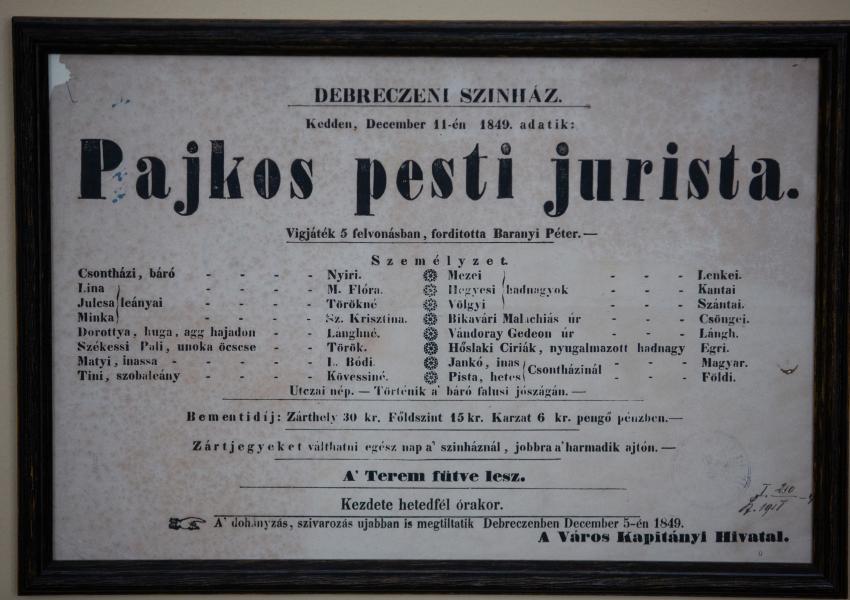 DEBRECZENI SZINHÁZ.
Kedden, December 11-én 1849. adatik:
Pajkos pesti jurista.
Vigjáték 5 felvonásban, forditotta Baranyi Péter.—
Személyzet.
Csontházi, báró - - - - Nyiri.
Lina
Julcsa leányai - - - -
Minka
M. Flóra.
Törökné
Sz. Krisztina.
Dorottya, huga, agg hajadon - - Lánghné.
Székessi Pali, unoka öcscse - - Török.
Matyi, inassa - - - - - L. Bódi.
Tini, szobaleány - - - - Kövessiné.
Mezei
Hegyesi hadnagyok
Völgyi
Lenkei.
Kantai
Szántai.
Bikavári Malachiás úr - - Csöngei.
Vándoray Gedeon úr - - Lángh.
Hőslaki Ciriák, nyugalmazott hadnagy Egri.
Jankó, inas
Pista, hetes
Csontházinál - - -
Magyar.
Földi.
Utczai nép. — Történik a' báró falusi jószágán. —
Bementidíj: Zárthely 30 kr. Földszint 15 kr. Karzat 6 kr. pengő pénzben.—
Zártjegyeketválthatni egész nap a' szinháznál, jobbra a' harmadik ajtón. —
A' Terem fűtve lesz.
Kezdete hetedfél órakor.
A' dohányzás, szivarozás ujabban is megtiltatik Debreczenben December 5-én 1849.
A Város Kapitányi Hivatal.